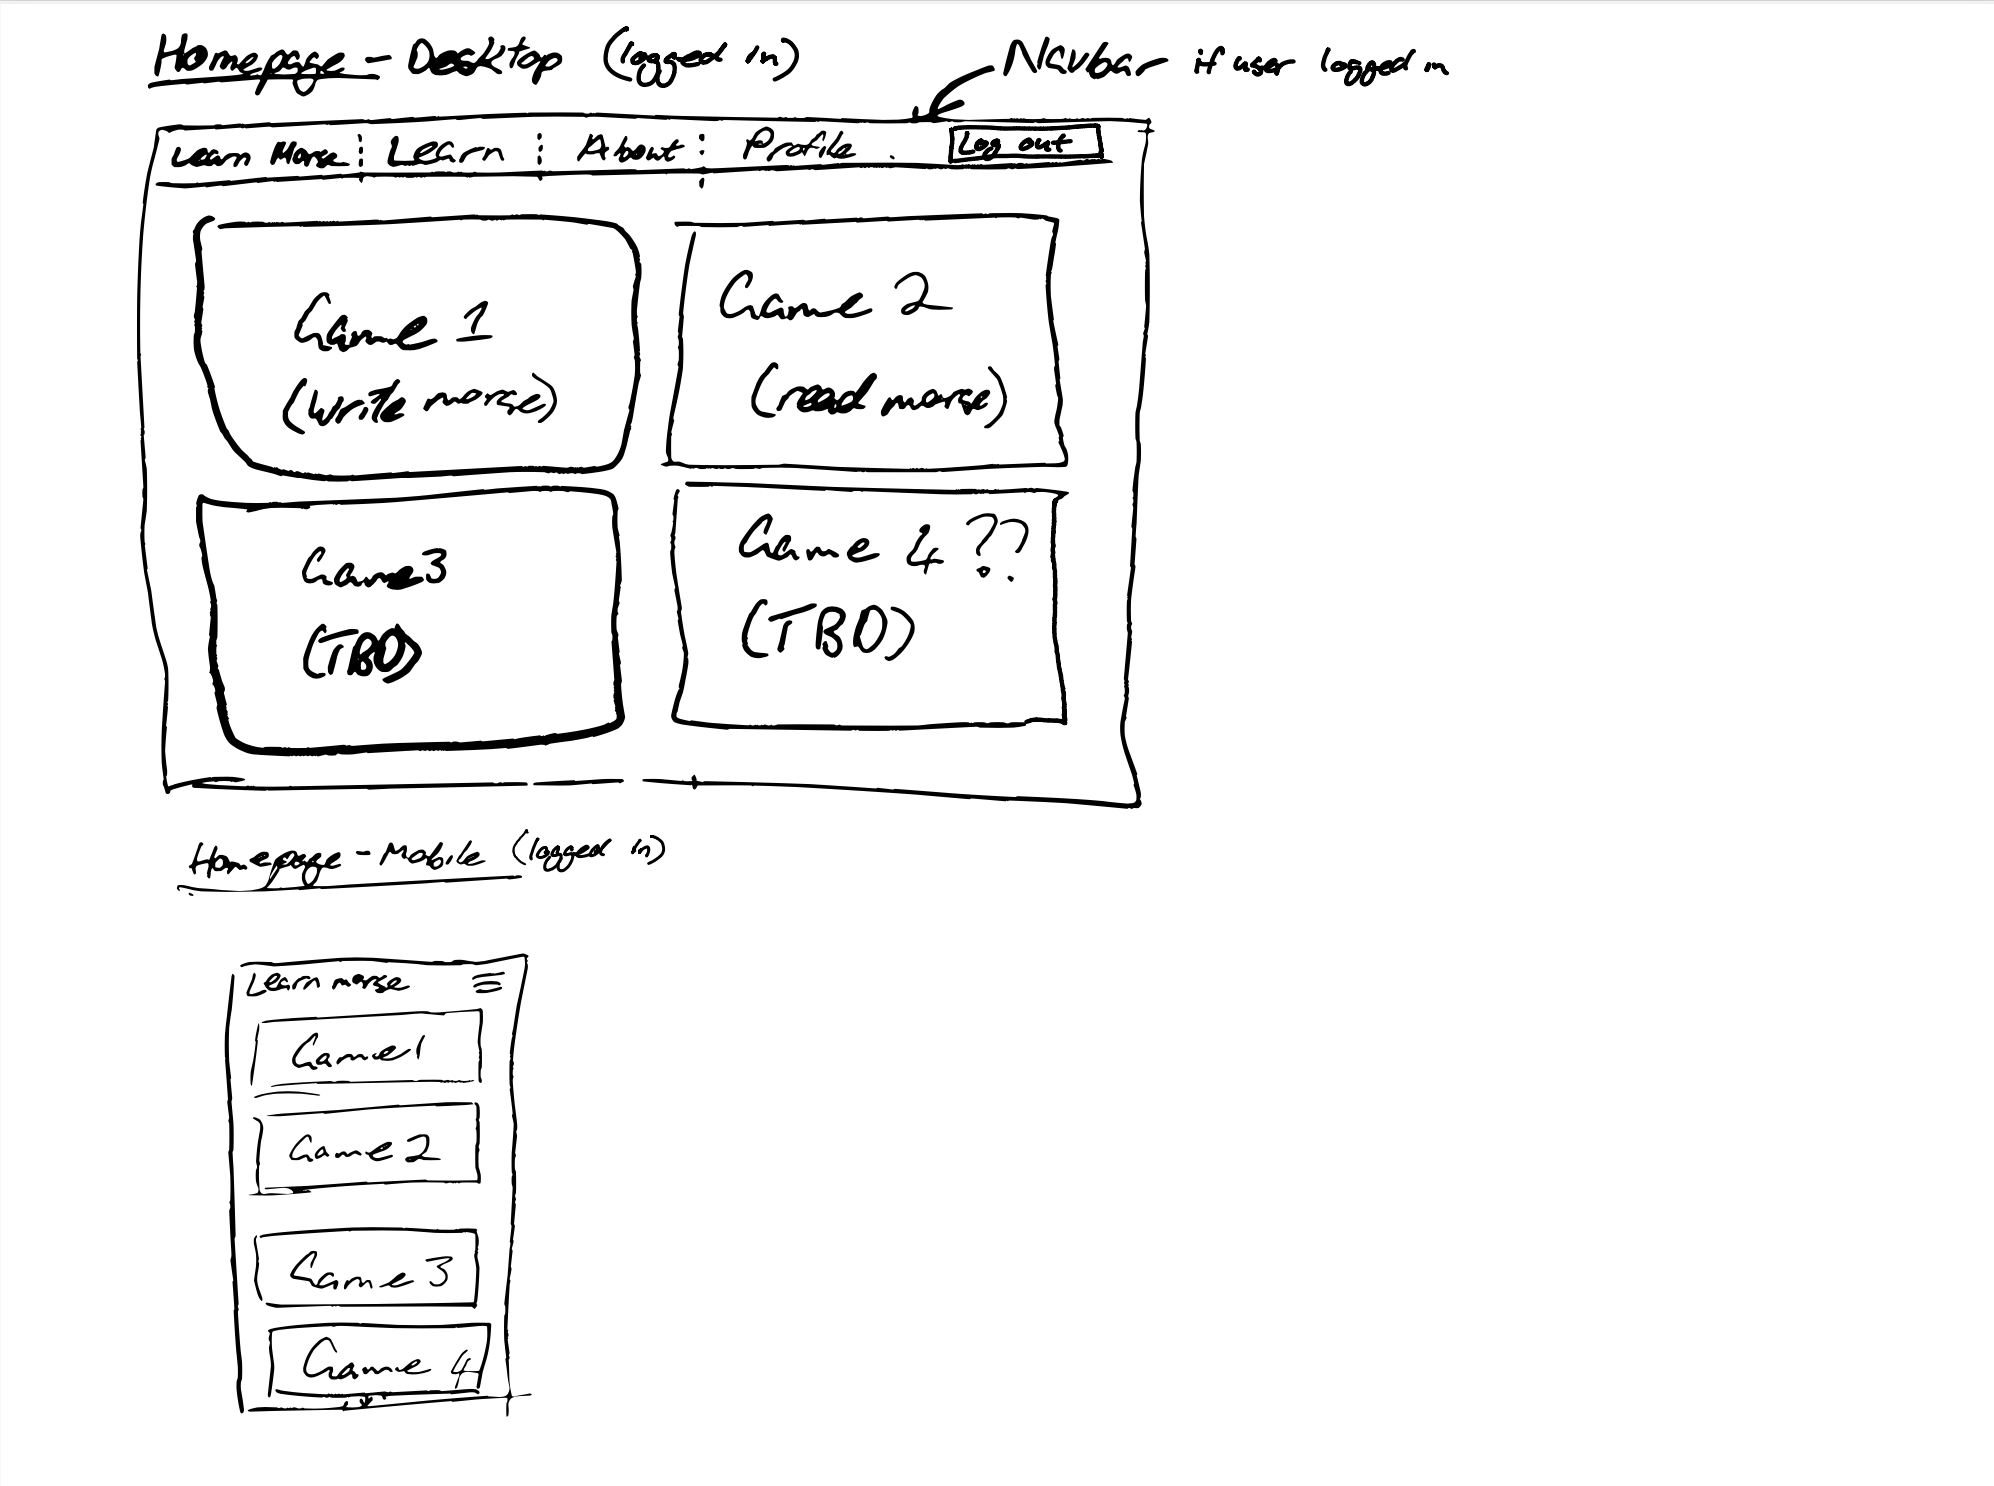 Homepage - Desktop (logged in)
Navbar if user logged in
Learn Morse Learn About Profile Log out
Game 1
(write morse)
Game 2
(read morse)
Game 3
(TBD)
Game 4 ??
(TBD)
Homepage - Mobile (logged in)
Learn morse
Game 1
Game 2
Game 3
Game 4